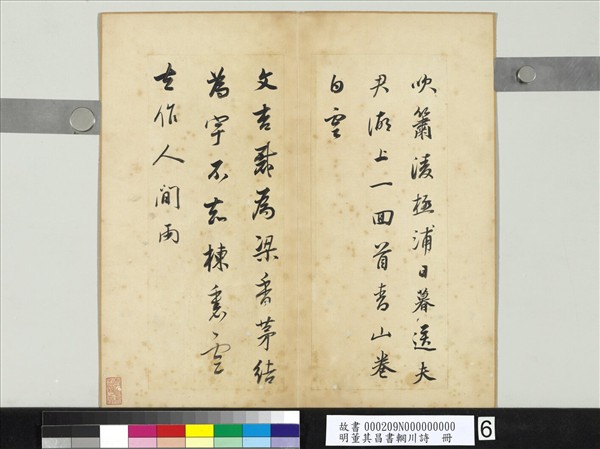 吹簫凌極浦日暮送夫
君湖上一回首青山卷
白雲
文杏裁為梁香茅結
為宇不知棟裏雲
去作人間雨
故書 000209N000000000
明董其昌書輞川詩 冊
6